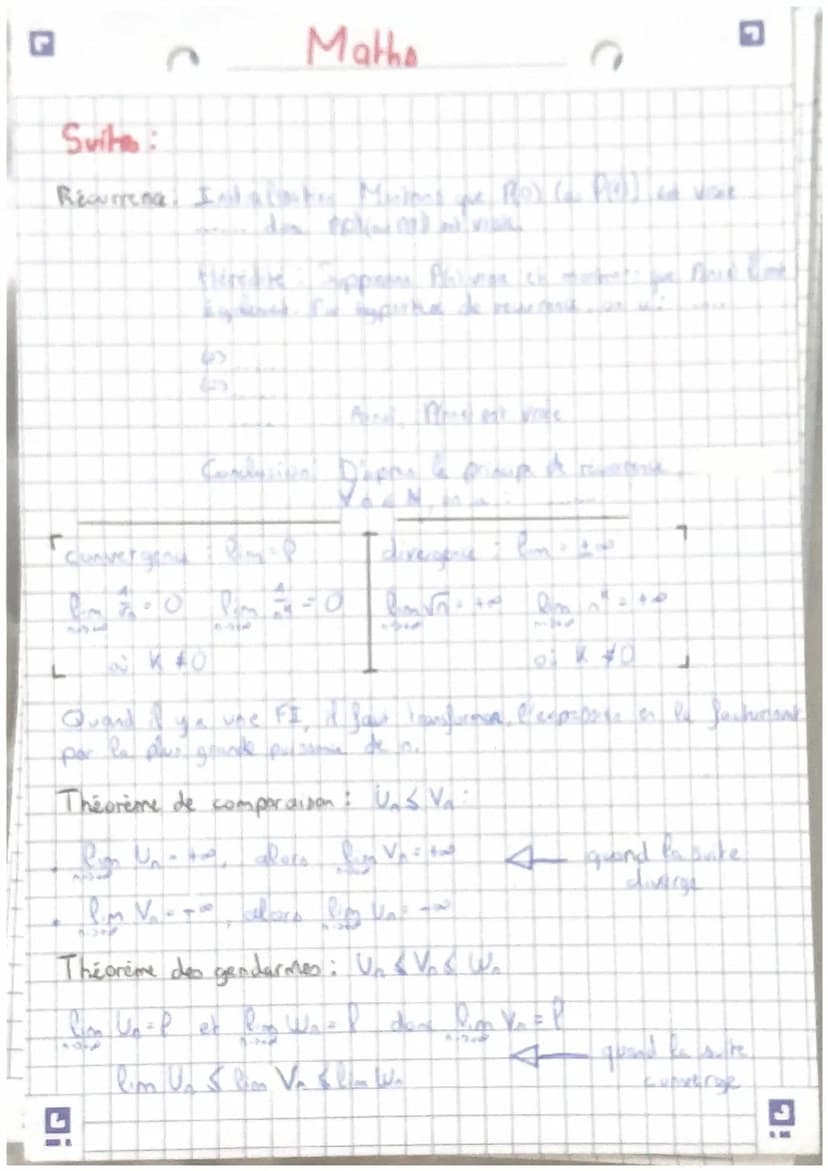 Maths
Suites :
Récurrence : Initialisation Montrons que P(0) (ou P(1)) est vraie
donc est vraie
Hérédité : Supposons vraie et montrons que
également. Par hypothèse de récurrence, on a :
<=>
<=>
Ainsi, est vraie
Conclusion : D'après le principe de récurrence
convergence : lim = l
divergence : lim = ±∞
lim 1/√n = 0 lim 1/n^k = 0
lim √n = +∞ lim n^k = +∞
où K ≠ 0
où K ≠ 0
Quand il y a une FI, il faut transformer l'expression en la factorisant
par la plus grande puissance de n.
Théorème de comparaison : Un ≤ Vn :
. lim Un = +∞, alors lim Vn = +∞ ⟵ quand la suite
diverge
. lim Vn = -∞, alors lim Un = -∞
Théorème des gendarmes : Un ≤ Vn ≤ Wn
lim Un = l et lim Wn = l donc lim Vn = l
⟵ quand la suite
converge
lim Un ≤ lim Vn ≤ lim Wn